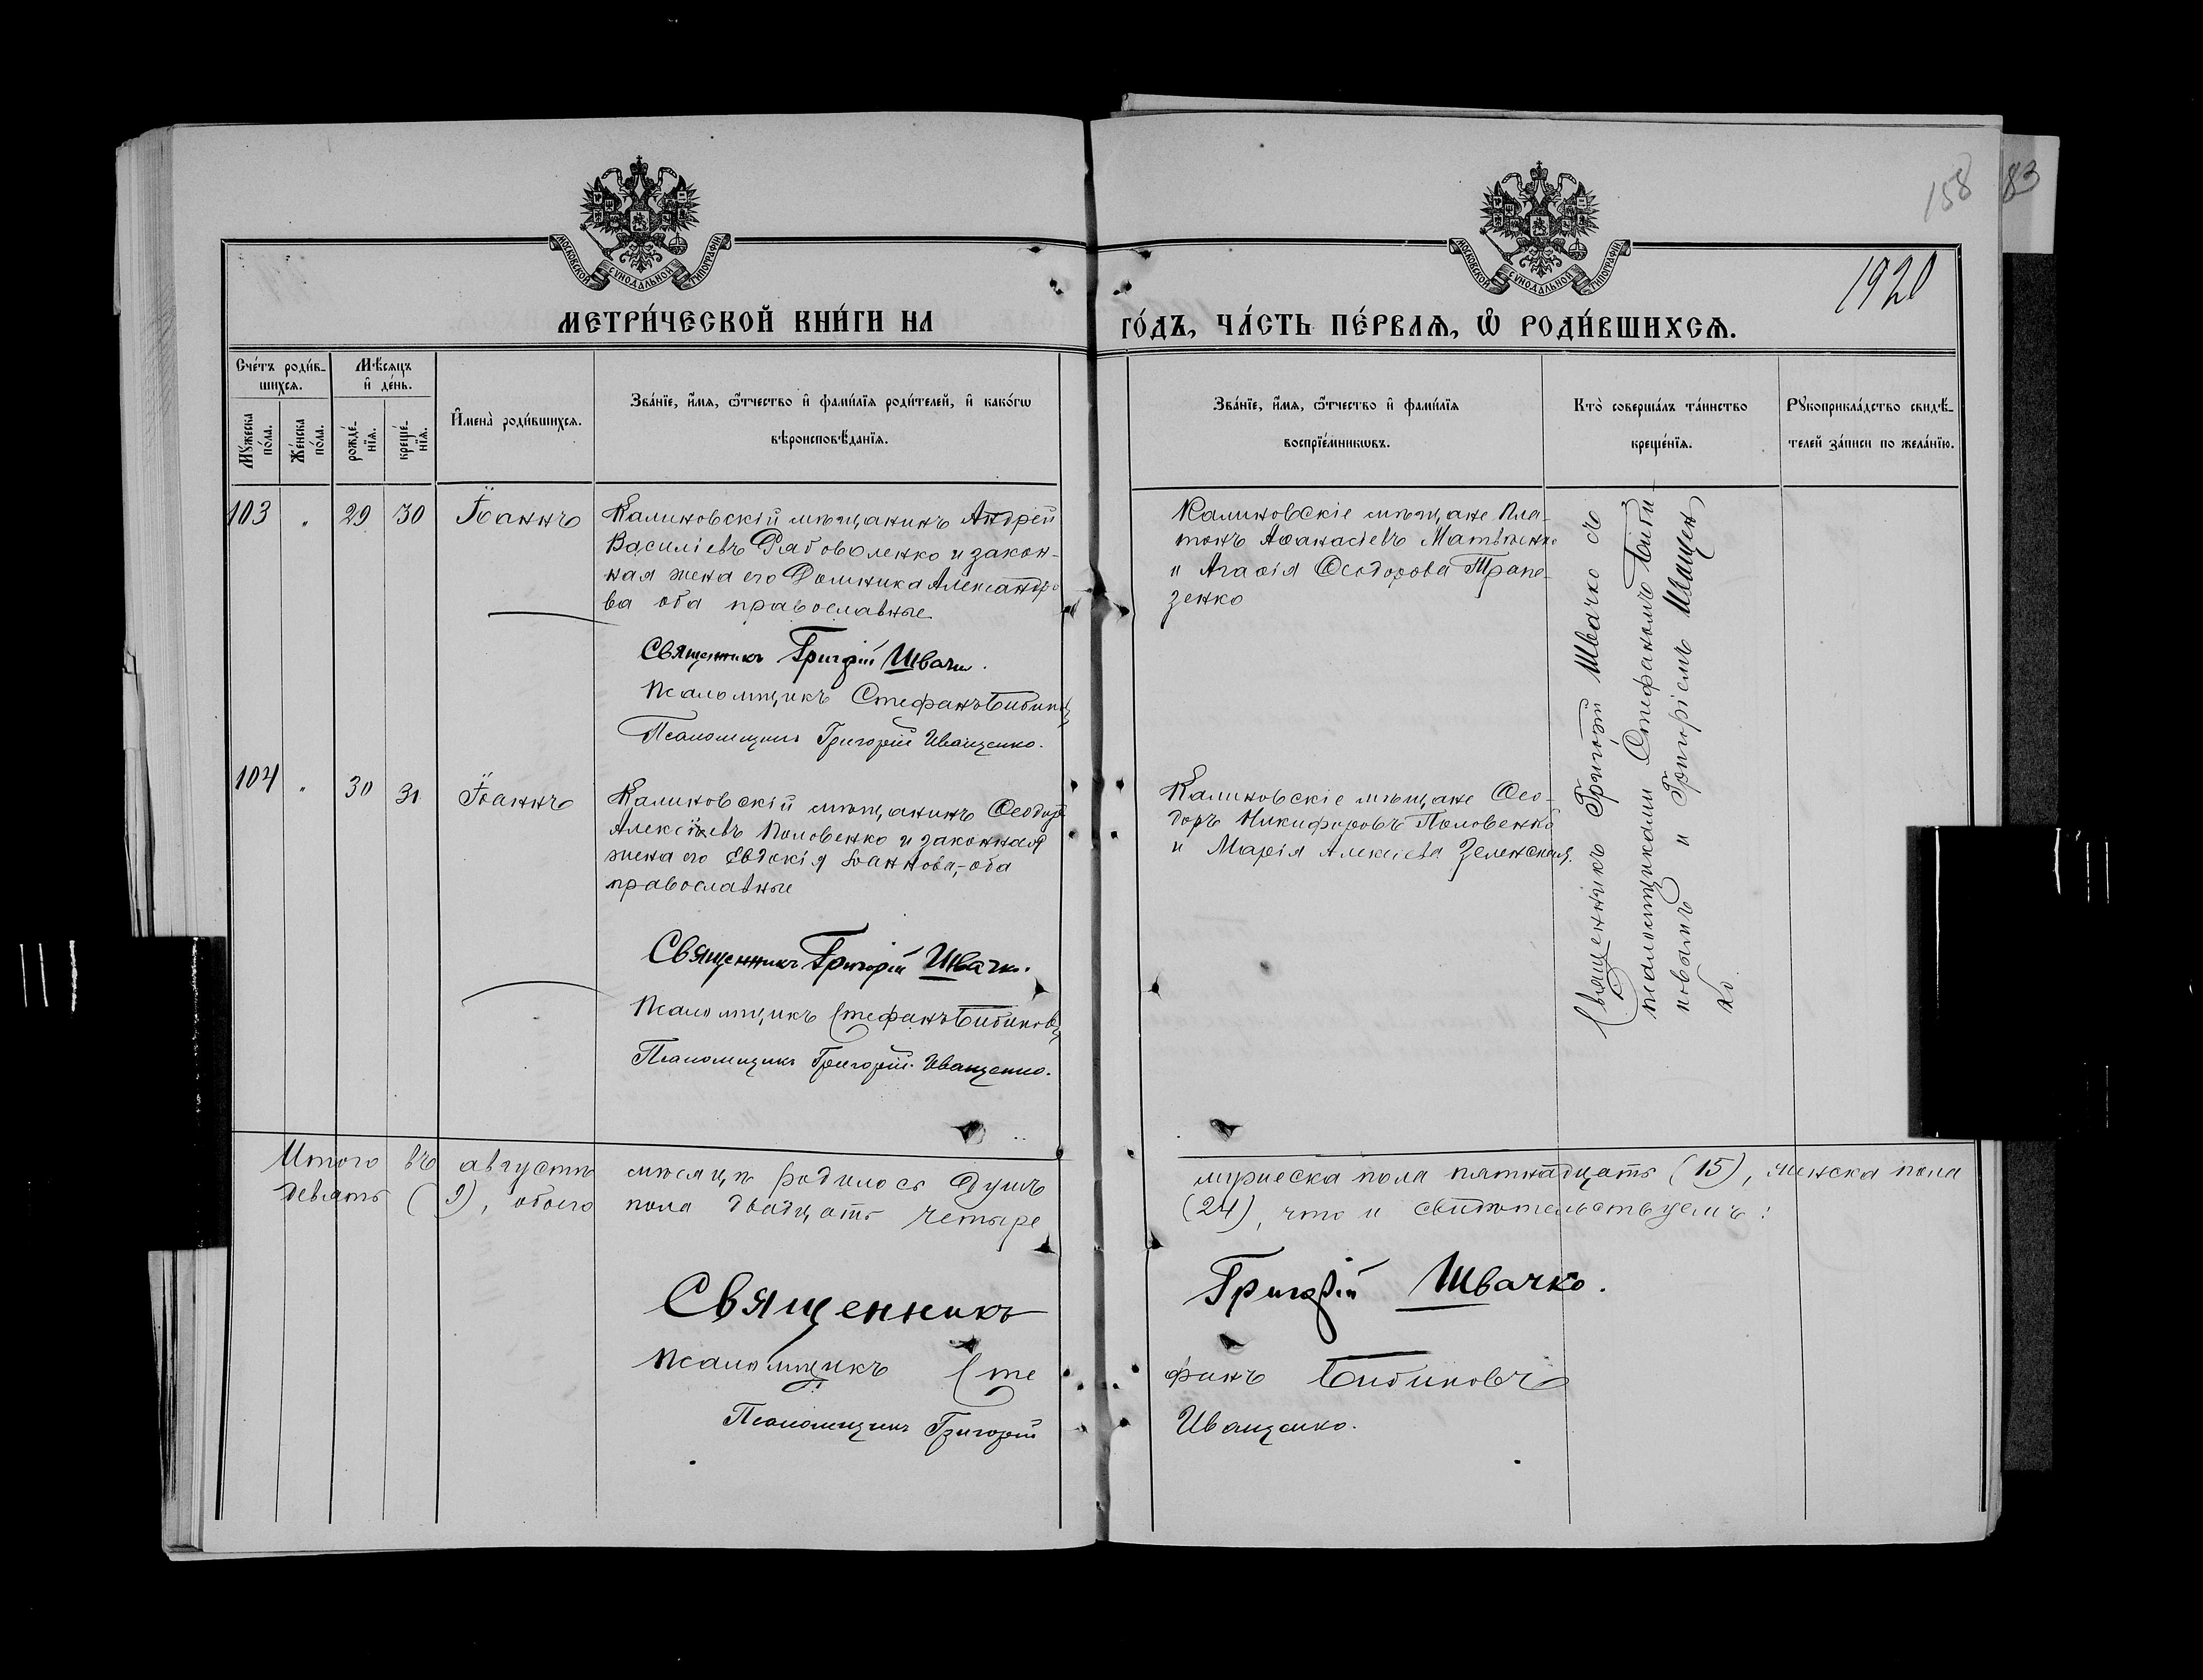 158
83
МОСКОВСКОЙ СѴНОДАЛЬНОЙ ТИПОГРАФІИ
МОСКОВСКОЙ СѴНОДАЛЬНОЙ ТИПОГРАФІИ
1920
МЕТРИ́ЧЕСКОЙ КНИ́ГИ НА
ГО́ДЪ, ЧА́СТЬ ПЕ́РВАѦ, Ѽ РОДИ́ВШИХСѦ.
Сче́тъ роди́в-
шихсѧ.
Мѣ́сѧцъ
и҆ де́нь.
Мꙋ́жеска
по́ла.
Же́нска
по́ла.
рожде́-
нїѧ.
креще́-
нїѧ.
И҆мена̀ роди́вшихсѧ.
Зва́нїе, и҆́мѧ, ѻ҆́тчество и҆ фамѝлїѧ роди́телей, и҆ како́гѡ
вѣроисповѣ́данїѧ.
Зва́нїе, и҆́мѧ, ѻ҆́тчество и҆ фамѝлїѧ
воспрїе́мникѡвъ.
Кто̀ соверша́лъ та́инство
креще́нїѧ.
Рꙋкоприкла́дство свидѣ́-
телей за́писи по жела́нїю.
103 " 29 30 Іоаннъ
Калиновскій мѣщанинъ Андрей
Василіевъ Рябоволенко и закон-
ная жена его Домника Александро
ва оба православные
Священникъ Григорій Швачко.
Псаломщикъ Стефанъ Бибиковъ
Псаломщикъ Григорій Иващенко.
Калиновскіе мѣщане Пла-
тонъ Аѳанасіевъ Матвѣенко
и Агаѳія Ѳеодорова Трапе-
зенко
Священникъ Григорій Швачко съ
псаломщиками Стефаномъ Биби-
ковымъ и Григоріемъ Иващен
ко
104 " 30 31 Іоаннъ
Калиновскій мѣщанинъ Ѳеодоръ
Алексіевъ Половенко и законная
жена его Евдокія Іоаннова,-оба
православные
Священникъ Григорій Швачко.
Псаломщикъ Стефанъ Бибиковъ
Псаломщикъ Григорій Иващенко.
Калиновскіе мѣщане Ѳео-
доръ Никифоровъ Половенко
и Марія Алексіева Зеленская.
Итого въ августѣ мѣсяцѣ родилось душъ мужеска пола пятнадцать (15), женска пола
девять (9), обоего пола двадцать четыре (24), что и свидѣтельствуемъ:
Священникъ Григорій Швачко.
Псаломщикъ Стефанъ Бибиковъ
Псаломщикъ Григорій Иващенко.